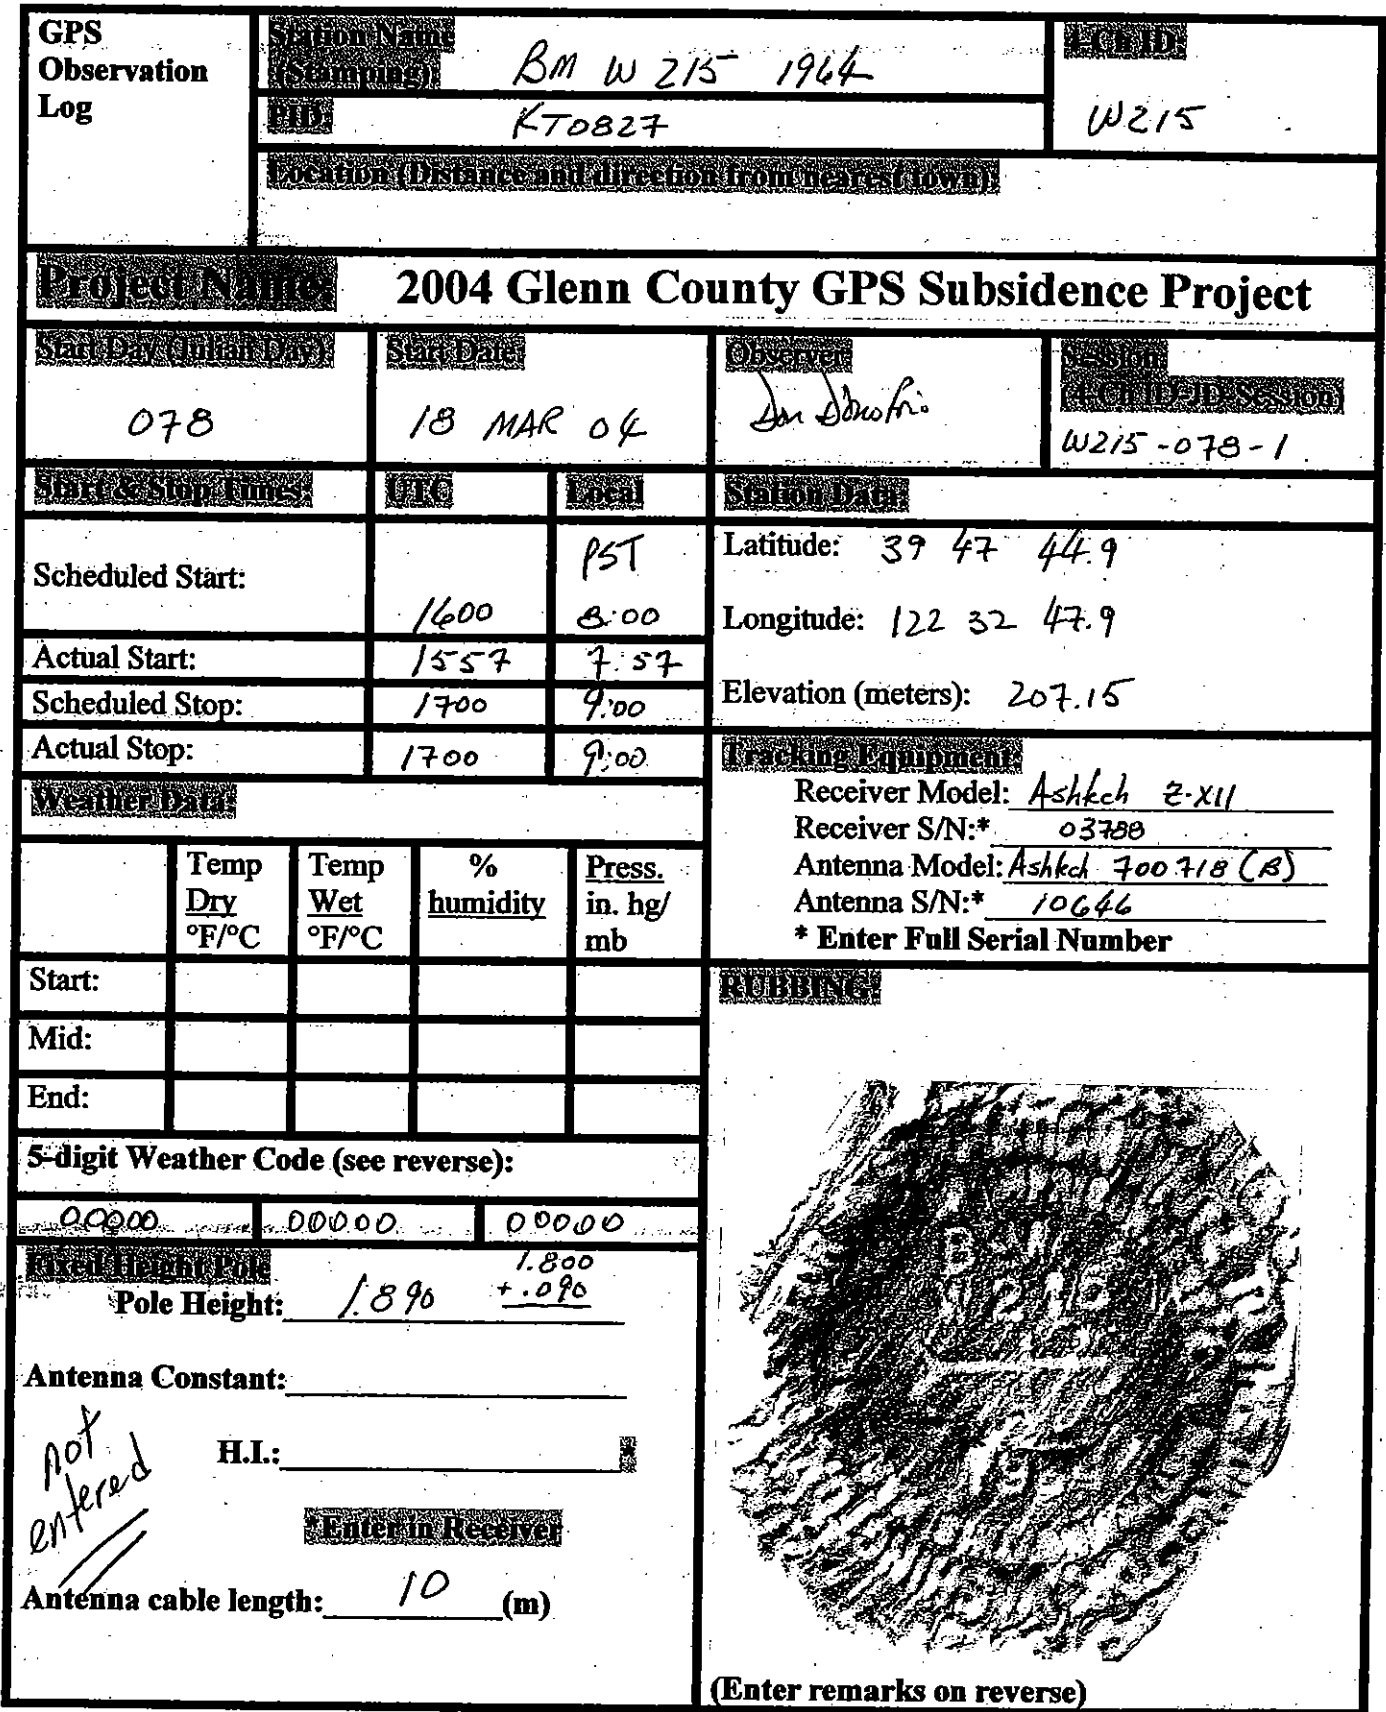 GPS
Observation
Log
Station Name
(Stamping):
BM W 215 1964
4-Ch ID:
W215
PID:
KT0827
Location (Distance and direction from nearest town):
Project Name: 2004 Glenn County GPS Subsidence Project
Start Day (Julian Day)
078
Start Date:
18 MAR 04
Observer
Session
(4-Ch ID-JD-Session)
W215-078-1
Start & Stop Times: UTC Local
Scheduled Start: 1600 PST 8:00
Actual Start: 1557 7:57
Scheduled Stop: 1700 9:00
Actual Stop: 1700 9:00
Station Data:
Latitude: 39 47 44.9
Longitude: 122 32 47.9
Elevation (meters): 207.15
Tracking Equipment:
Receiver Model: Ashtech Z-XII
Receiver S/N:* 03788
Antenna Model: Ashtech 700718 (B)
Antenna S/N:* 10646
* Enter Full Serial Number
Weather Data:
Temp Dry °F/°C
Temp Wet °F/°C
% humidity
Press. in. hg/ mb
Start:
Mid:
End:
5-digit Weather Code (see reverse):
00000 00000 00000
Fixed Height Pole
1.800
+.090
Pole Height: 1.890
Antenna Constant:
H.I.: *
not
entered
*Enter in Receiver
Antenna cable length: 10 (m)
RUBBING:
(Enter remarks on reverse)